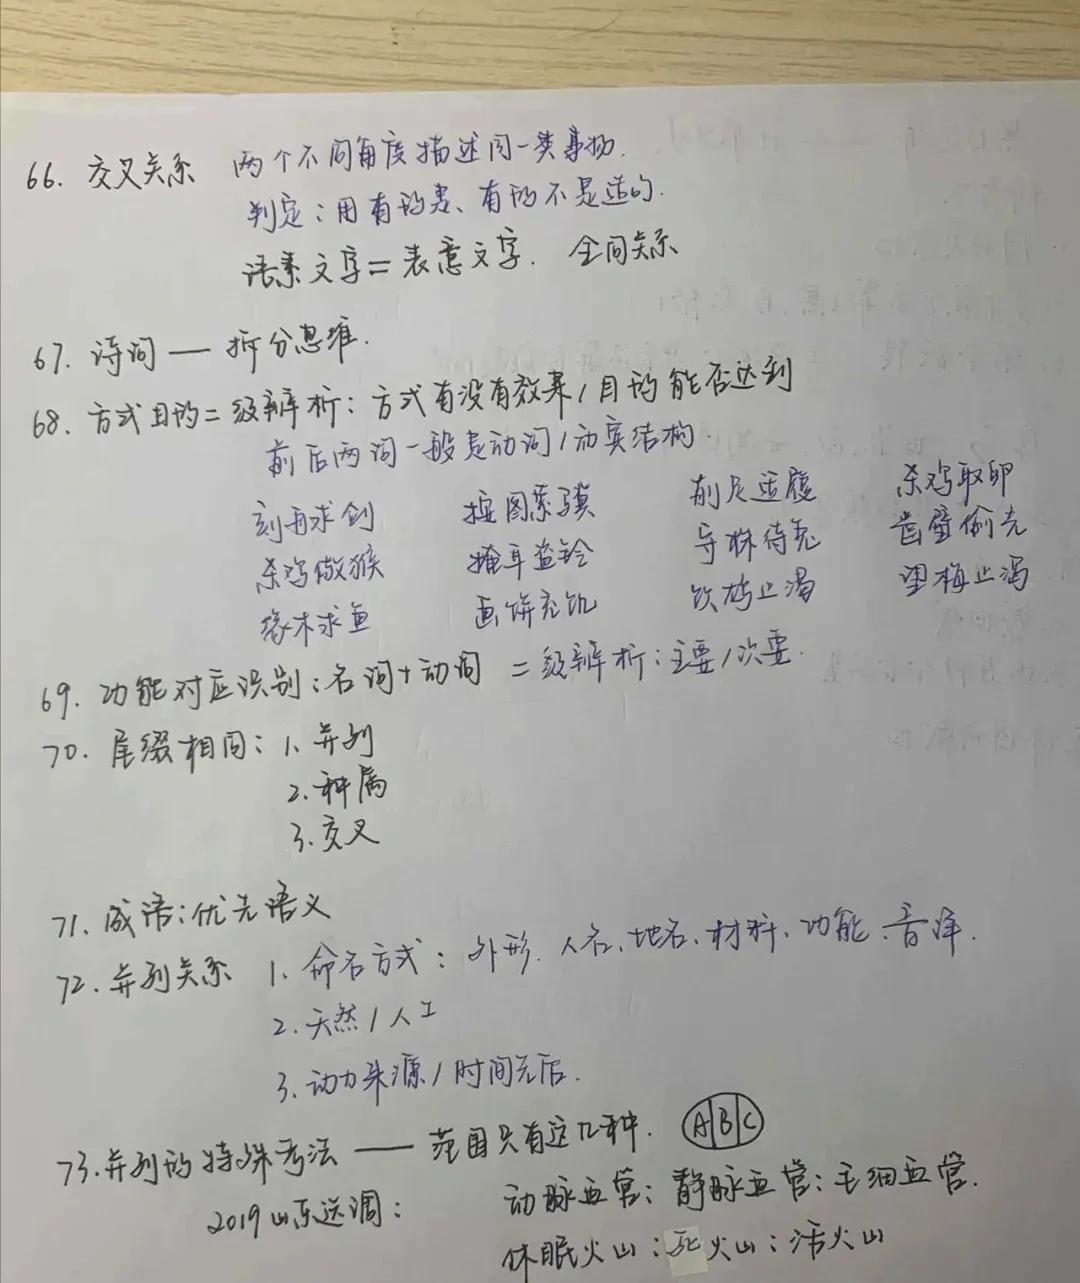 66. 交叉关系 两个不同角度描述同一类事物.
判定：用有的是、有的不是造句.
语素文字=表意文字. 全同关系
67. 诗词 — 拆分思维.
68. 方式目的二级辨析：方式有没有效果/目的能否达到
前后两词一般是动词/动宾结构
刻舟求剑 按图索骥 削足适履 杀鸡取卵
杀鸡儆猴 掩耳盗铃 守株待兔 凿壁偷光
缘木求鱼 画饼充饥 饮鸩止渴 望梅止渴
69. 功能对应识别：名词+动词 二级辨析：主要/次要.
70. 尾缀相同：1. 并列
2. 种属
3. 交叉
71. 成语：优先语义
72. 并列关系 1. 命名方式：外形. 人名、地名、材料、功能、音译.
2. 天然/人工
3. 动力来源/时间先后.
73. 并列的特殊考法 — 范围只有这几种. A|B|C
2019山东选调： 动脉血管：静脉血管：毛细血管.
休眠火山：死火山：活火山